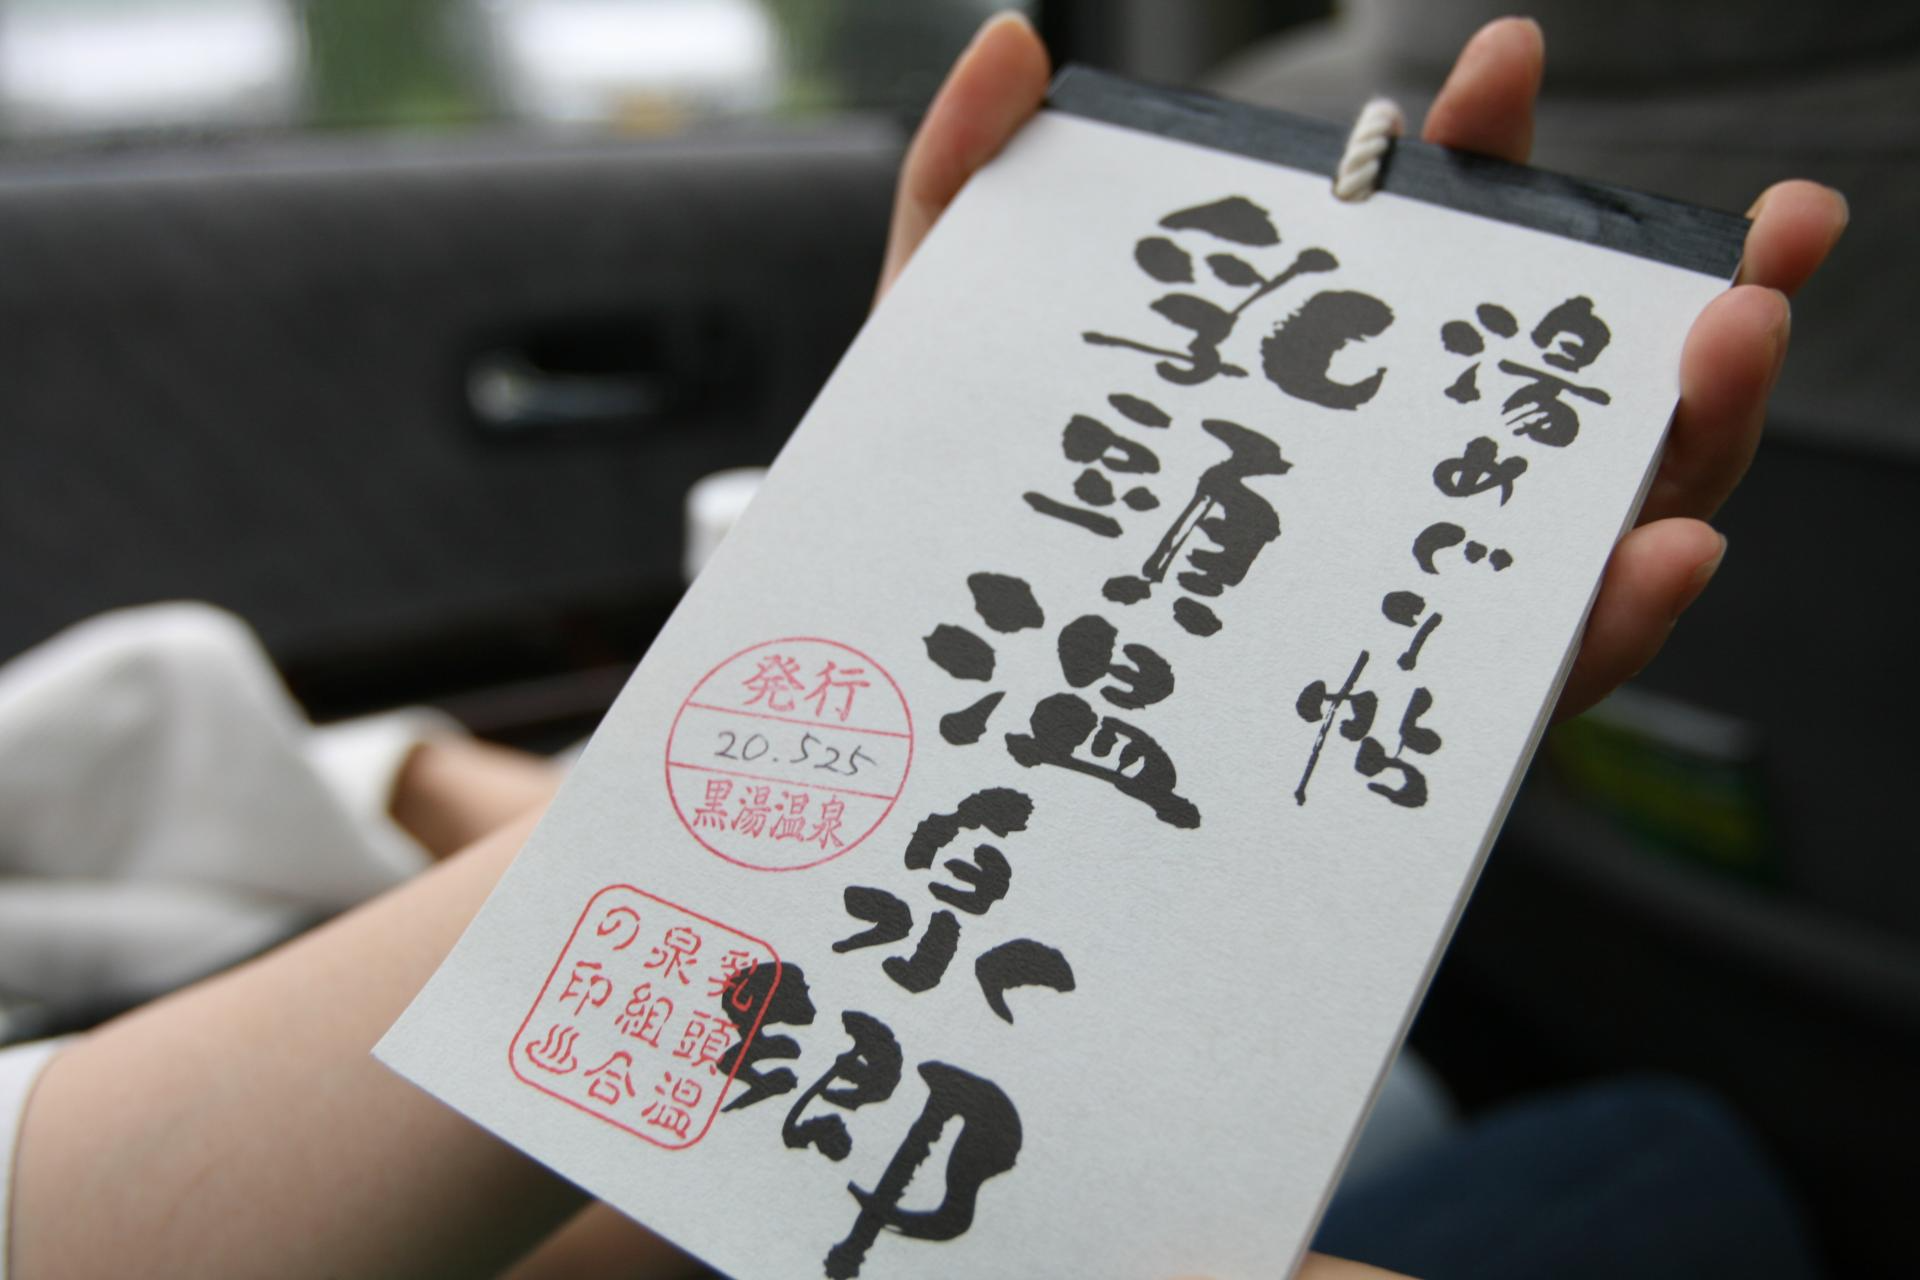 湯めぐり帖
乳頭温泉郷
発行
20.525
黒湯温泉
乳頭温
泉組合
の印♨